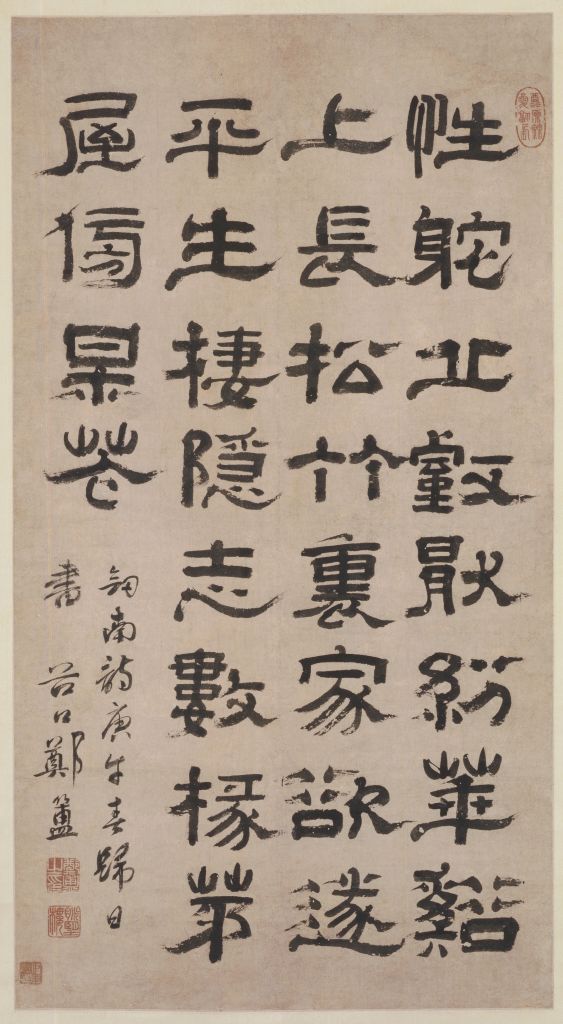 性躭丘壑猒紛華谿
上長松竹裏家欲遂
平生棲隱志數椽茅
屋傍杲花
劒南詩庚午春歸日
書 谷口鄭簠